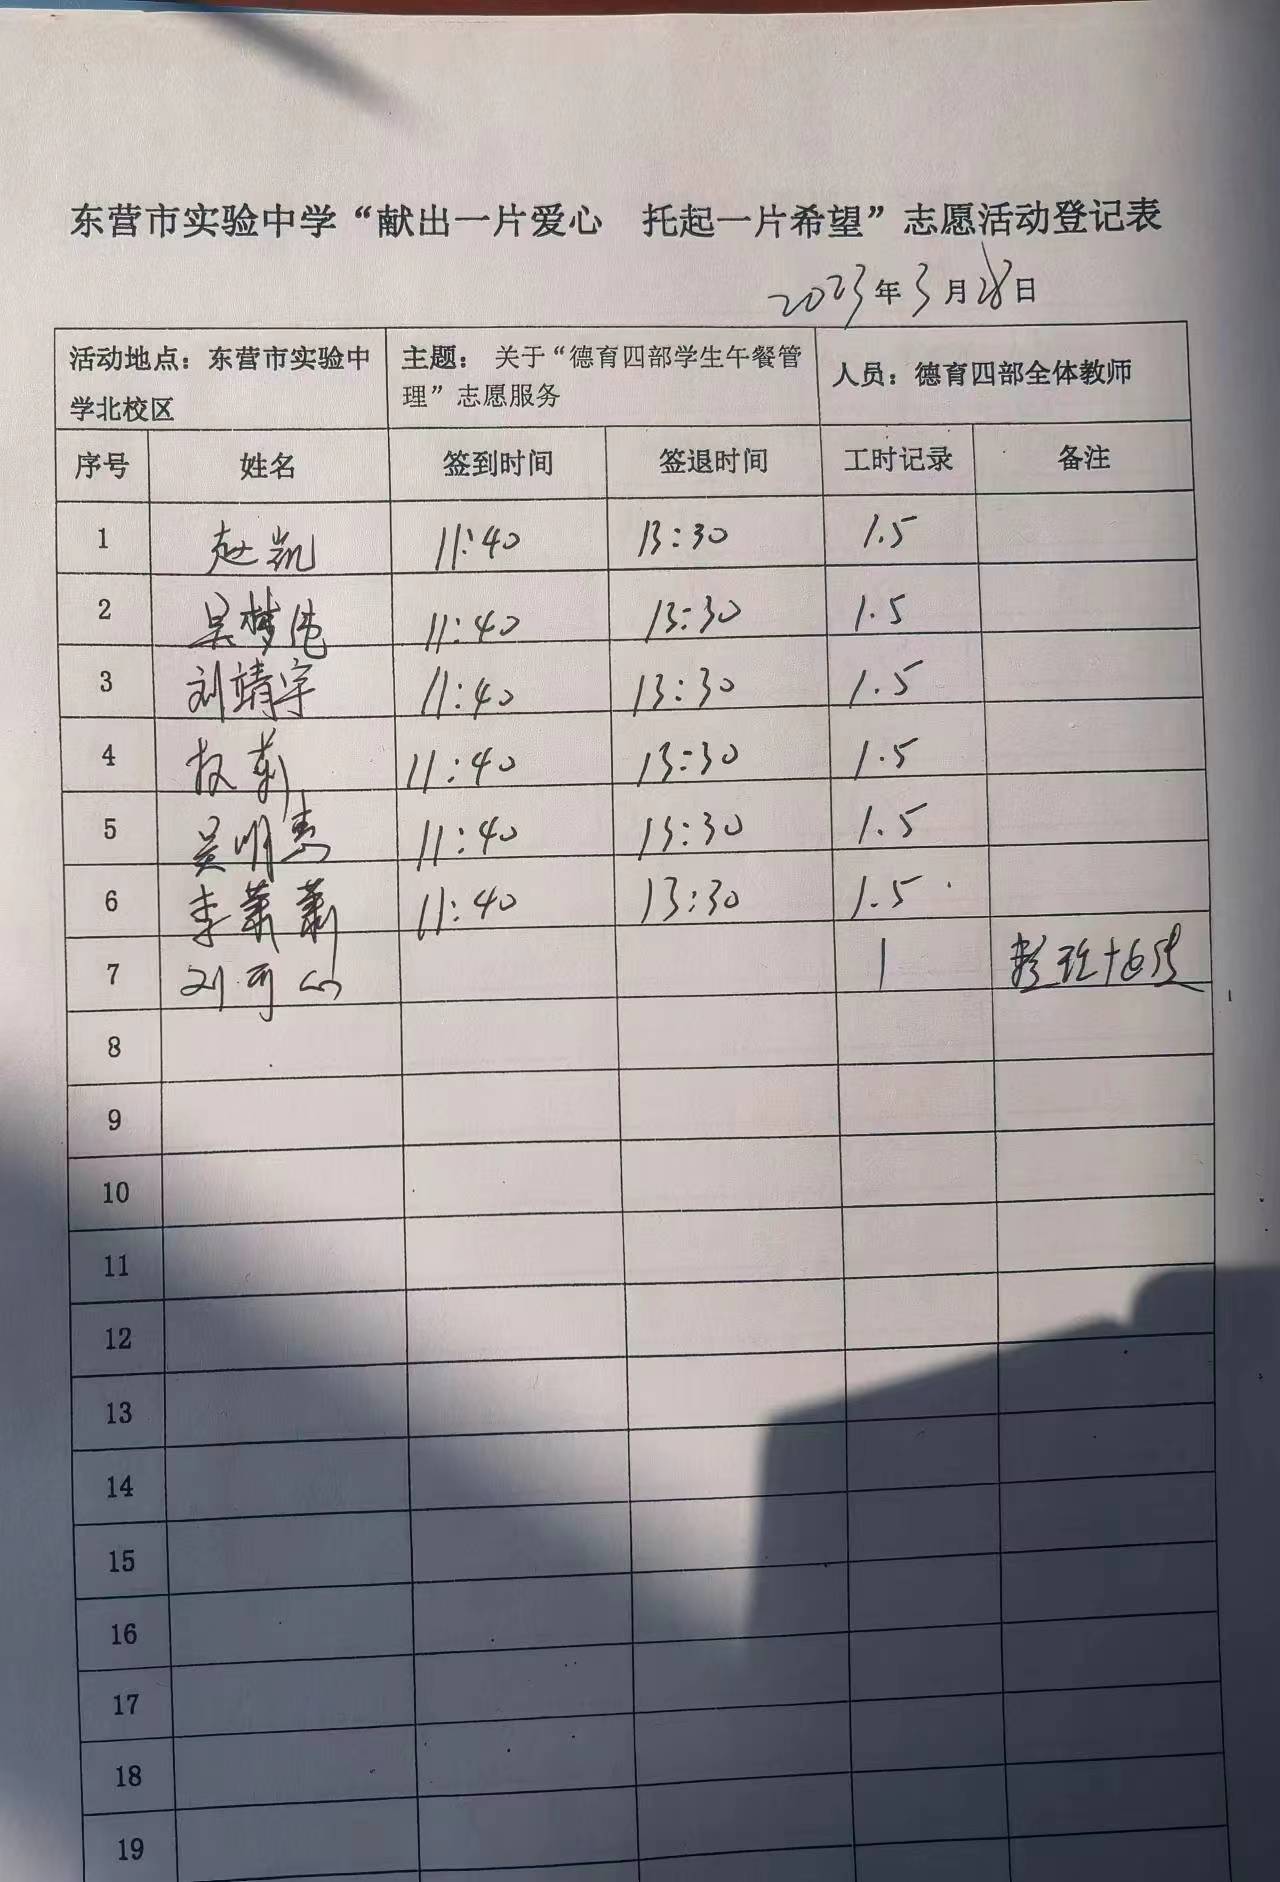 东营市实验中学“献出一片爱心 托起一片希望”志愿活动登记表
2023年3月28日
活动地点：东营市实验中学北校区 主题：关于“德育四部学生午餐管理”志愿服务 人员：德育四部全体教师
序号 姓名 签到时间 签退时间 工时记录 备注
1 赵凯 11:40 13:30 1.5
2 吴梦 11:40 13:30 1.5
3 刘靖宇 11:40 13:30 1.5
4 11:40 13:30 1.5
5 吴明 11:40 13:30 1.5
6 李萧萧 11:40 13:30 1.5
7 刘可心 1
8
9
10
11
12
13
14
15
16
17
18
19